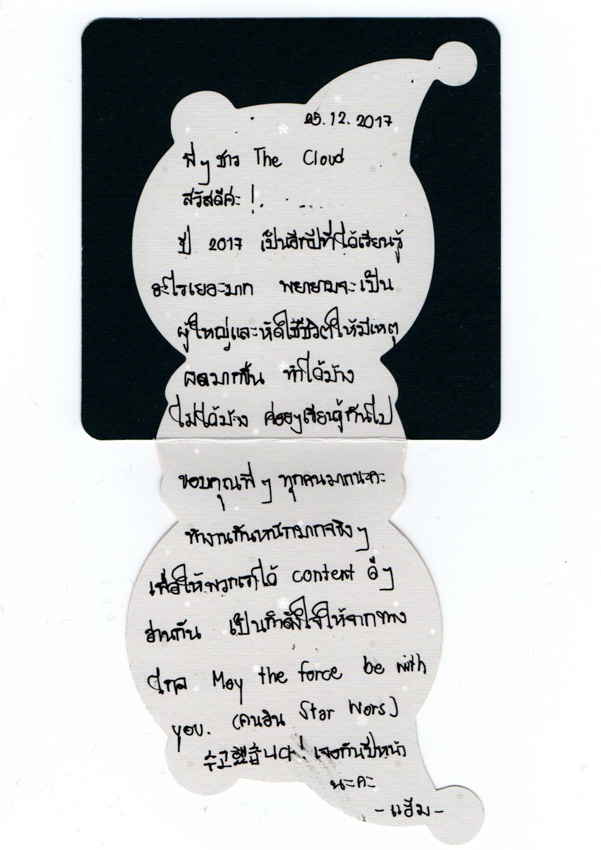 25.12.2017
พี่ๆ ชาว The Cloud
สวัสดีค่ะ!
ปี 2017 เป็นอีกปีที่ได้เรียนรู้
อะไรเยอะมาก พยายามจะเป็น
ผู้ใหญ่และหัดใช้ชีวิตให้มีเหตุ
ผลมากขึ้น ทำได้บ้าง
ไม่ได้บ้าง ค่อยๆเรียนรู้กันไป
ขอบคุณพี่ๆ ทุกคนมากนะคะ
ทำงานกันหนักมากจริงๆ
เพื่อให้พวกเราได้ content ดีๆ
อ่านกัน เป็นกำลังใจให้จากทาง
ไกล May the force be with
you. (คนอิน Star Wars)
수고했습니다! เจอกันปีหน้า
นะคะ
-แอ๊ม-